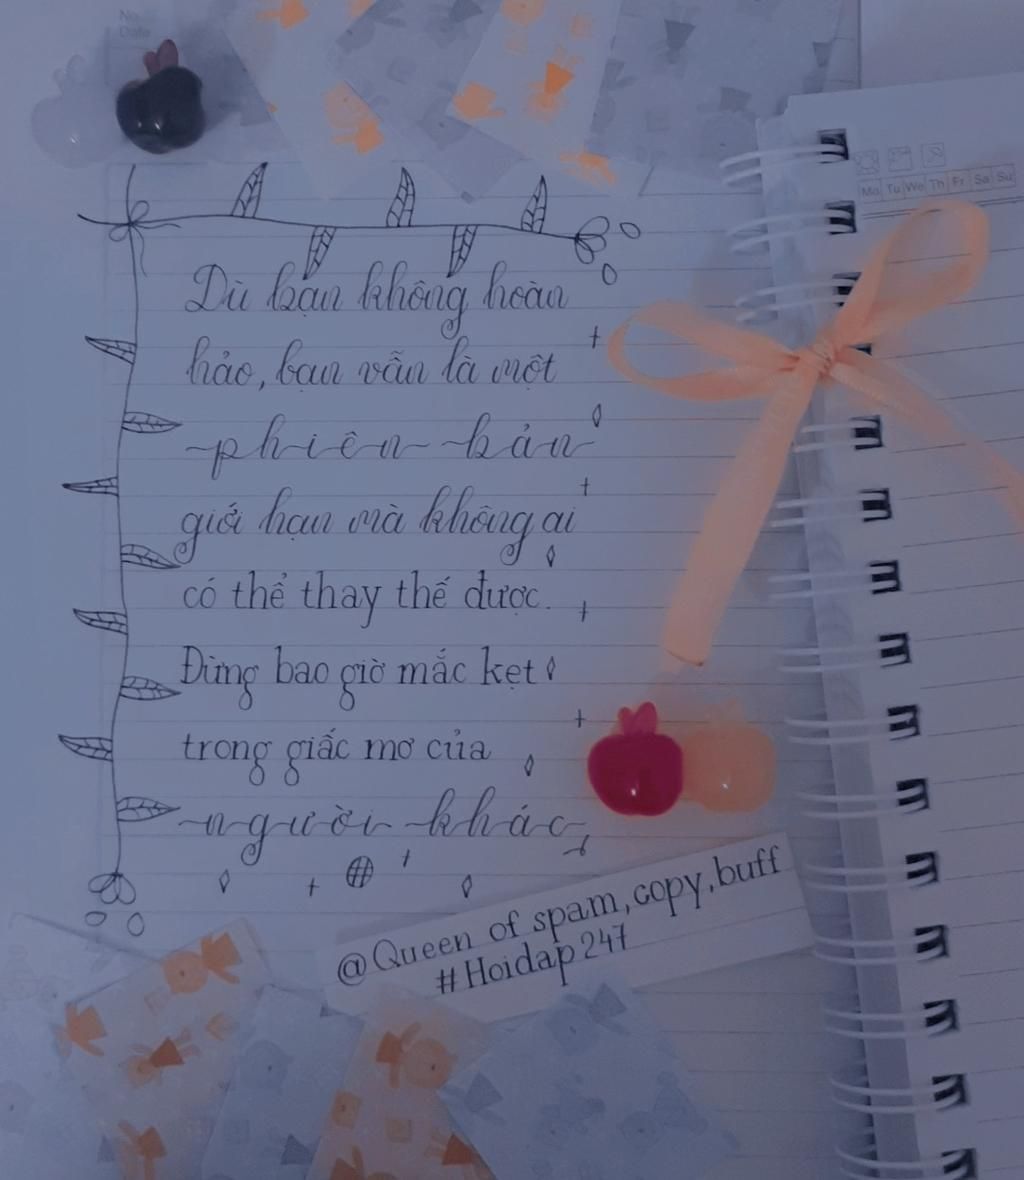 No.
Date
Mo Tu We Th Fr Sa Su
Dù bạn không hoàn
hảo, bạn vẫn là một
phiên bản
giới hạn mà không ai
có thể thay thế được.
Đừng bao giờ mắc kẹt
trong giấc mơ của
người khác,
@Queen of spam, copy, buff
#Hoidap247